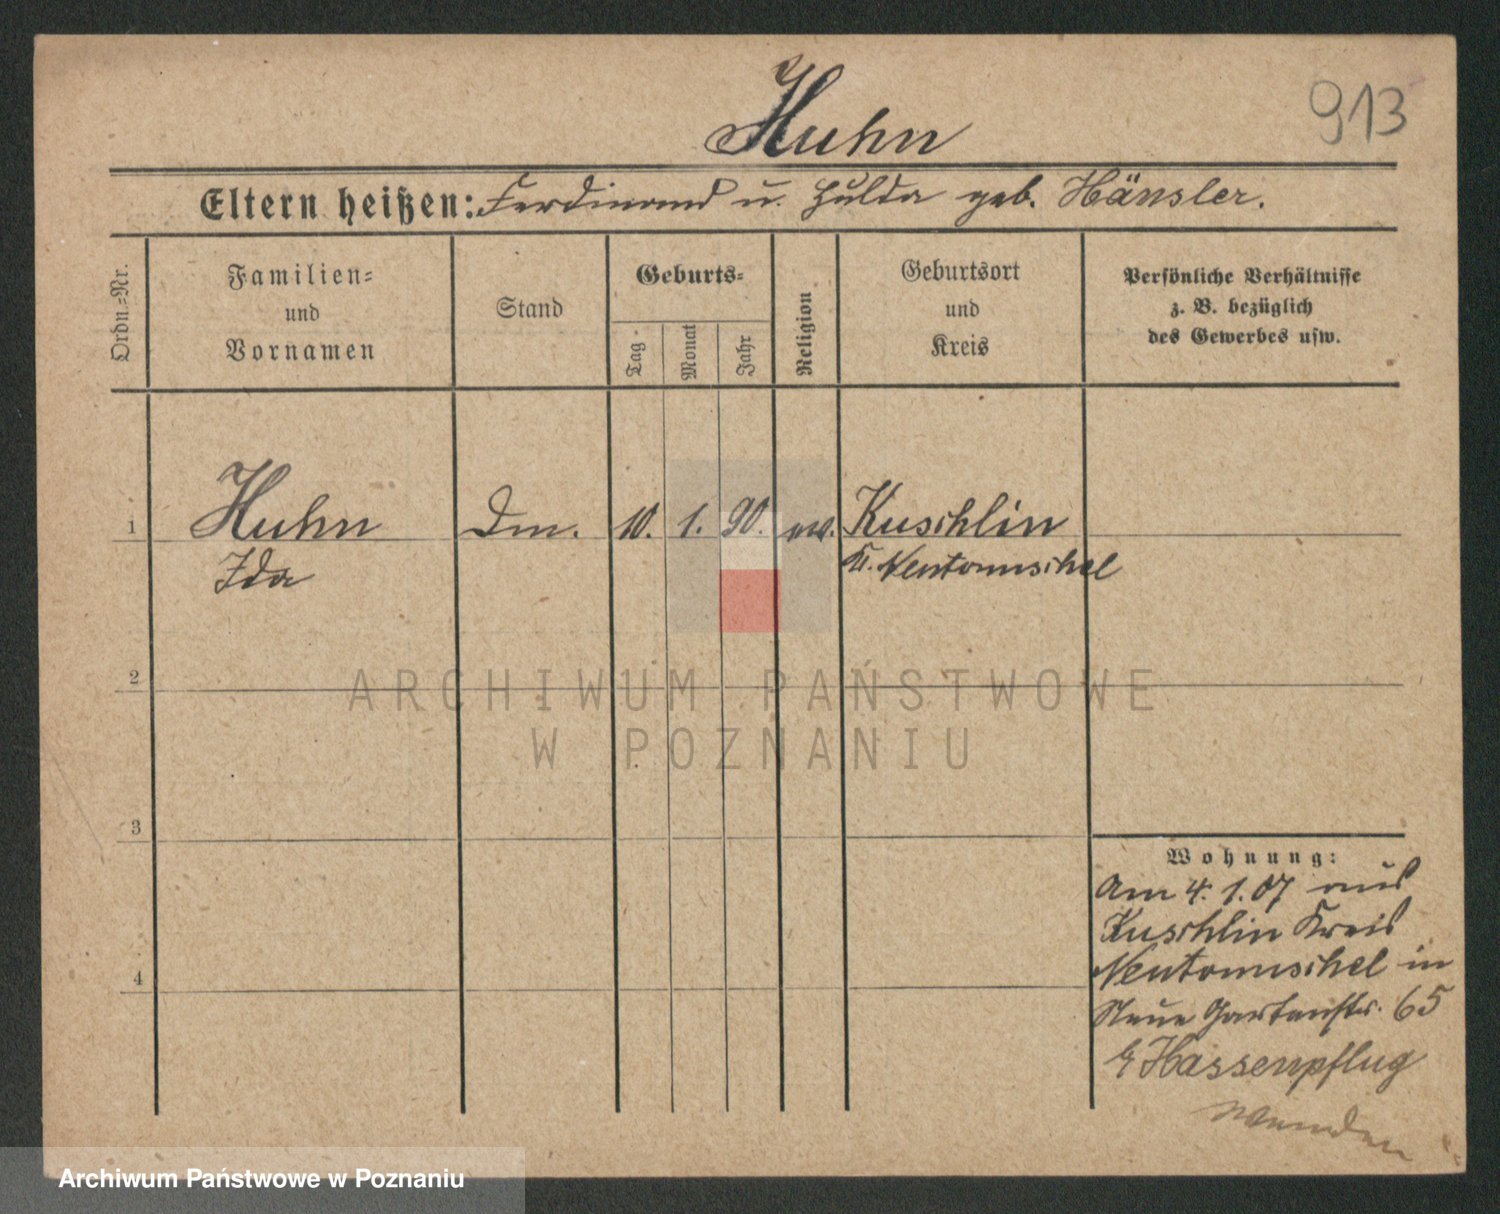 913
Huhn
Eltern heißen: Ferdinand u. Hulda geb. Hänsler.
Ordn.=Nr.
Familien=
und
Vornamen
Stand
Geburts=
Tag
Monat
Jahr
Religion
Geburtsort
und
Kreis
Persönliche Verhältnisse
z. B. bezüglich
des Gewerbes usw.
1 Huhn Dm. 10. 1. 90. ev. Kuschlin
Ida Kr. Neutomischel
2
ARCHIWUM PAŃSTWOWE
W POZNANIU
3
4
Wohnung:
Am 4. 1. 07 aus
Kuschlin Kreis
Neutomischel in
Neue Gartenstr. 65
Hassenpflug
wenden
Archiwum Państwowe w Poznaniu